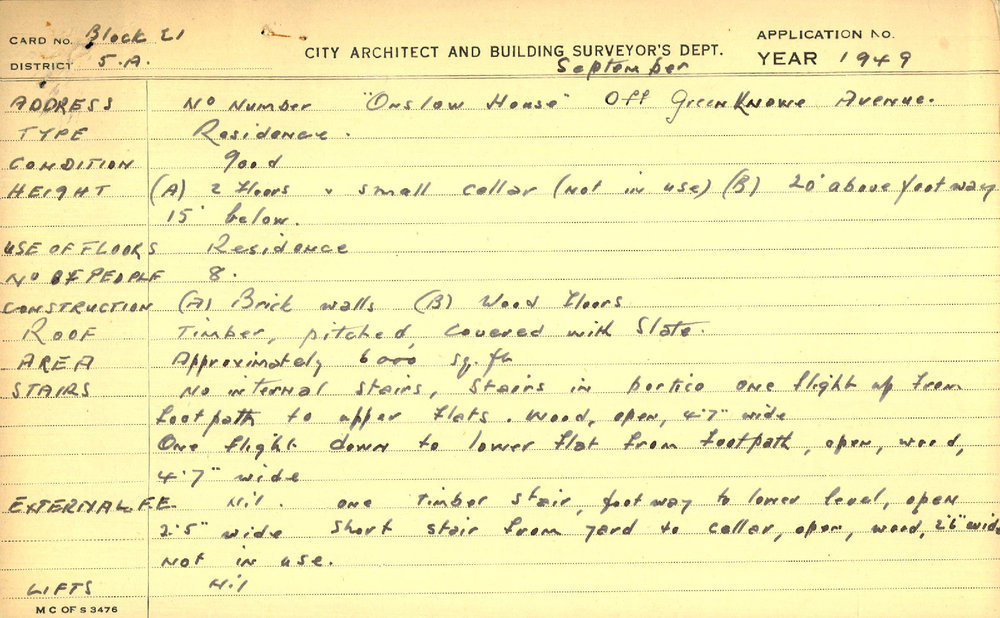 CARD No. Block E1
DISTRICT 5.A.
CITY ARCHITECT AND BUILDING SURVEYOR'S DEPT.
September
APPLICATION No.
YEAR 1949
ADDRESS No Number "Onslow House" Off Greenknowe Avenue.
TYPE Residence.
CONDITION good
HEIGHT (A) 2 floors + small cellar (not in use) (B) 20' above footway
15' below.
USE OF FLOORS Residence
No OF PEOPLE 8.
CONSTRUCTION (A) Brick walls (B) Wood floors
ROOF Timber, pitched, covered with Slate.
AREA Approximately 6000 sq. ft
STAIRS No internal stairs, stairs in portico one flight up from
footpath to upper flats. Wood, open, 4'7" wide
One flight down to lower flat from footpath, open, wood,
4'7" wide
EXTERNAL F.E. Nil. one timber stair, footway to lower level, open
2'5" wide Short stair from yard to cellar, open, wood, 2'6" wide
not in use.
LIFTS Nil
M C OF S 3476